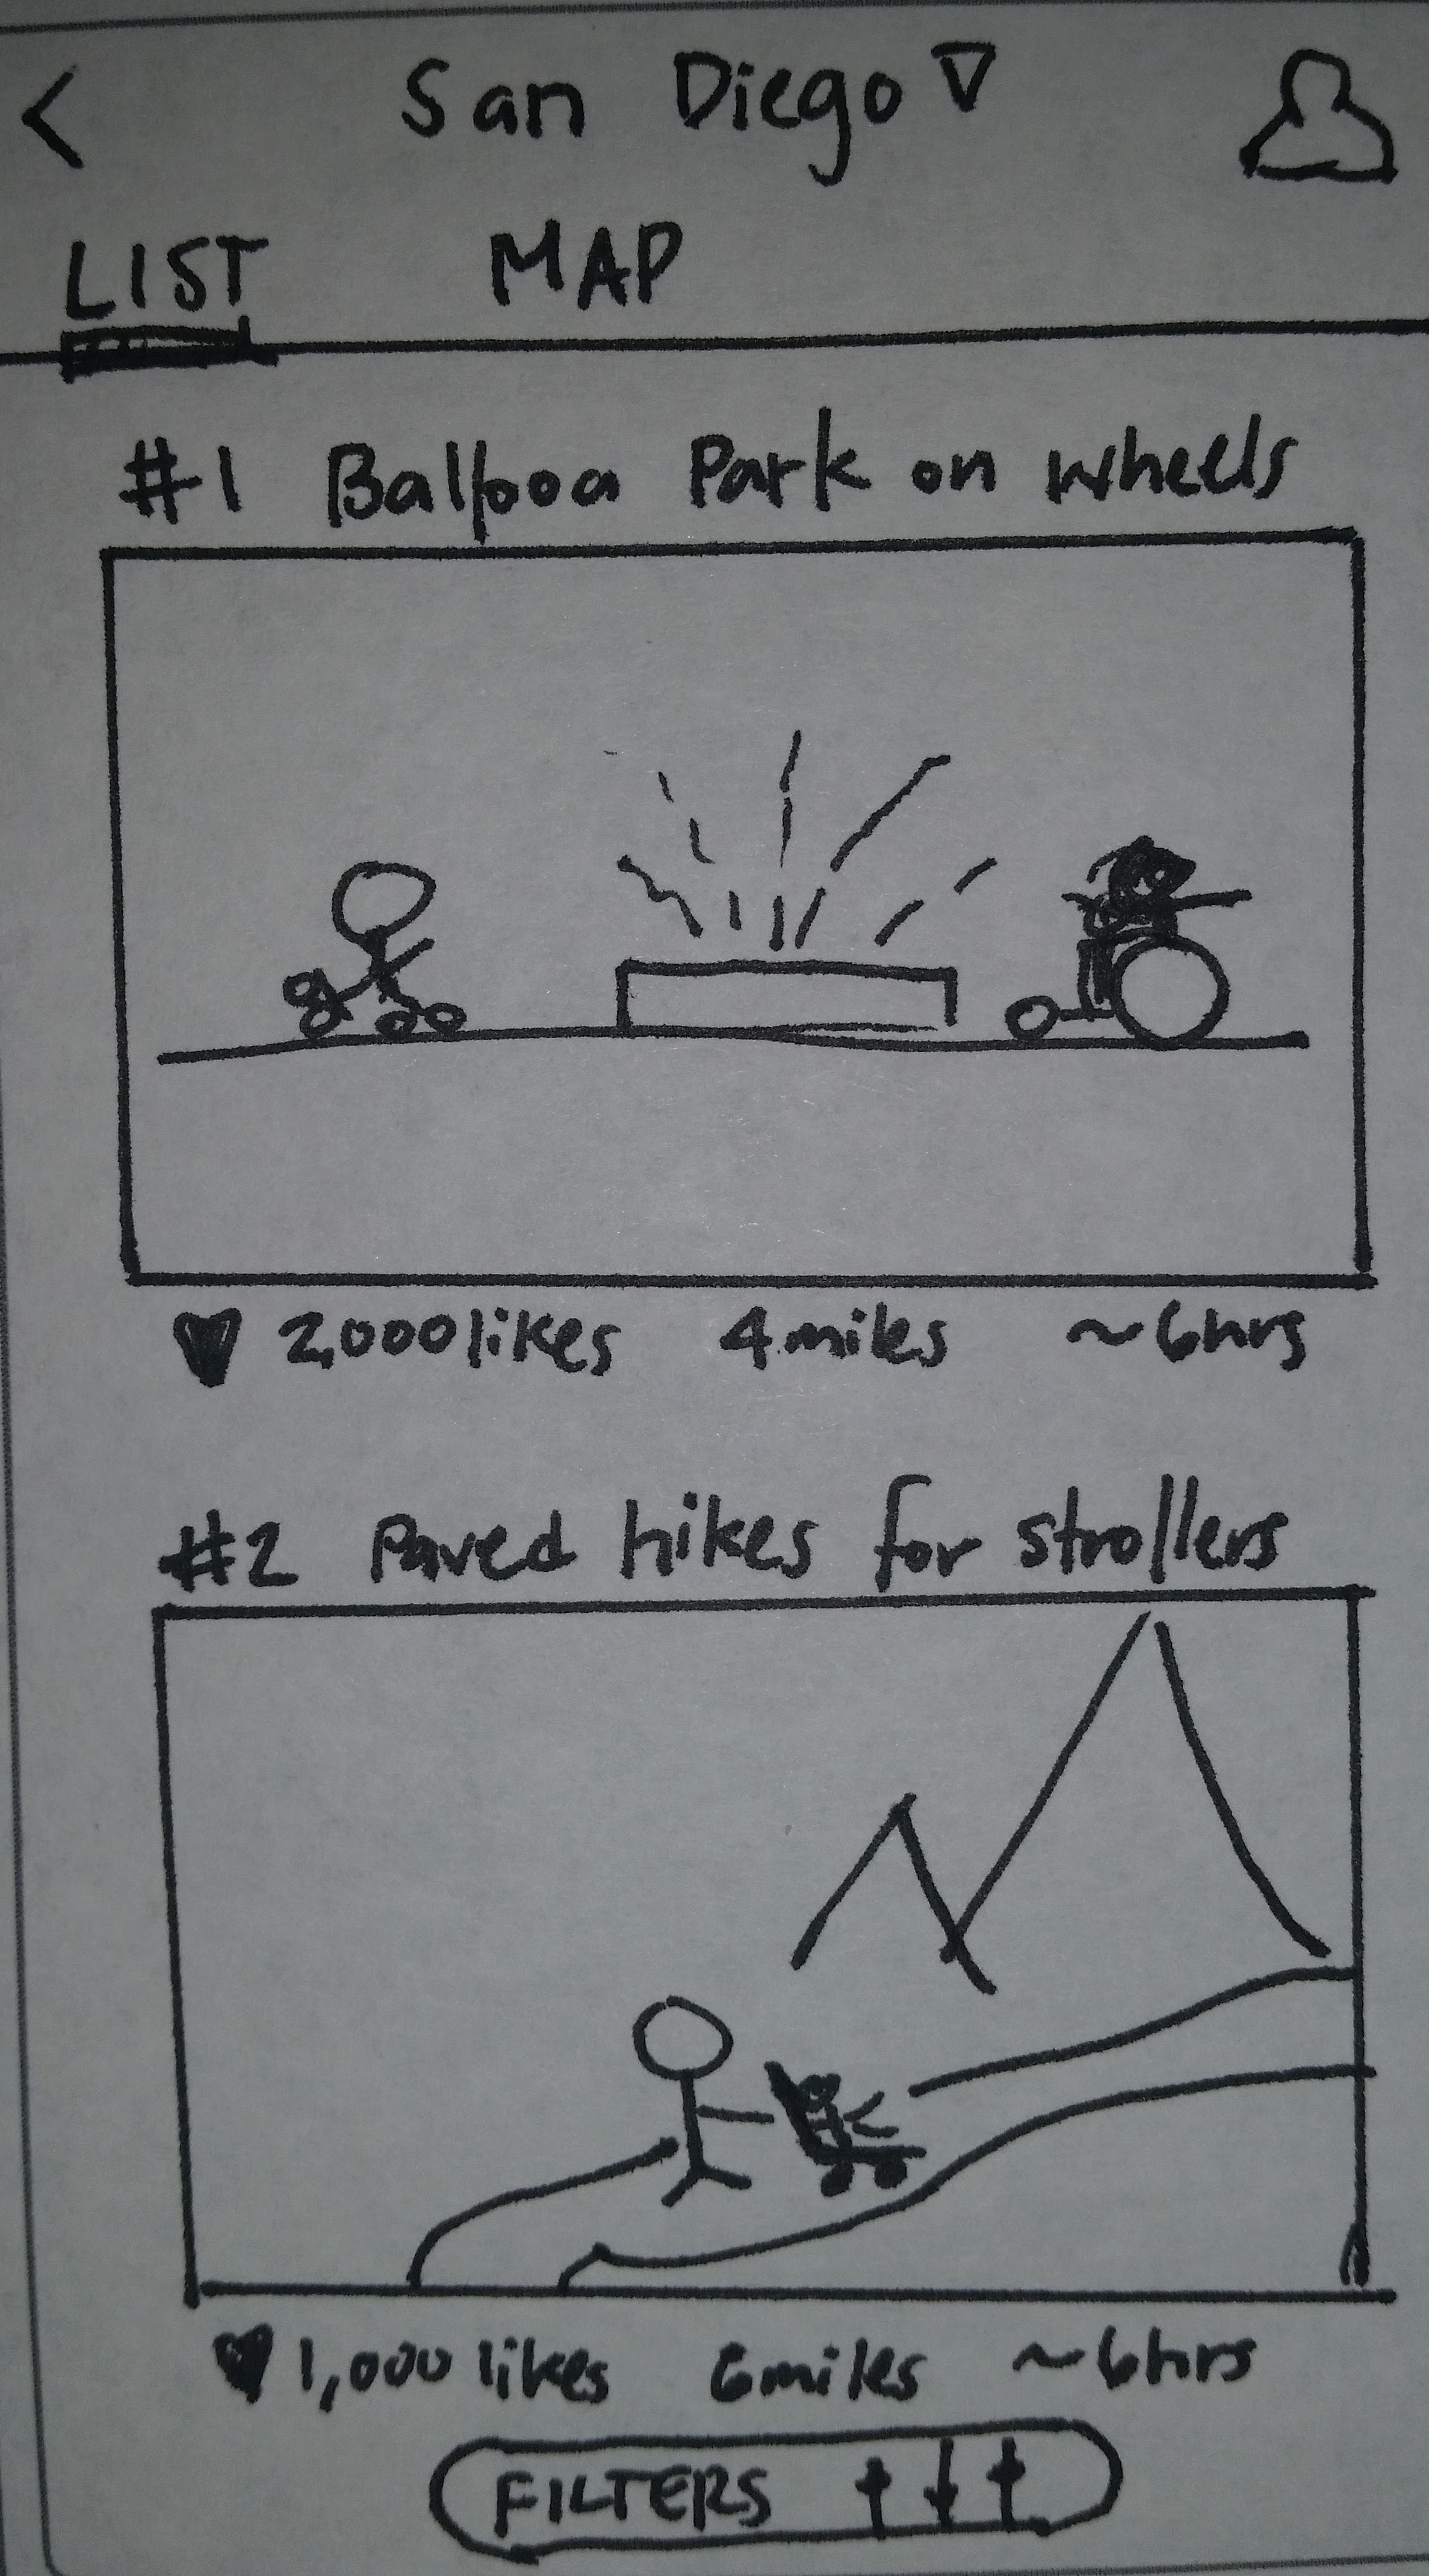 < San Diego ▽
LIST MAP
#1 Balboa Park on wheels
♥ 2,000 likes 4 miles ~6hrs
#2 Paved hikes for strollers
♥ 1,000 likes 6 miles ~6hrs
FILTERS